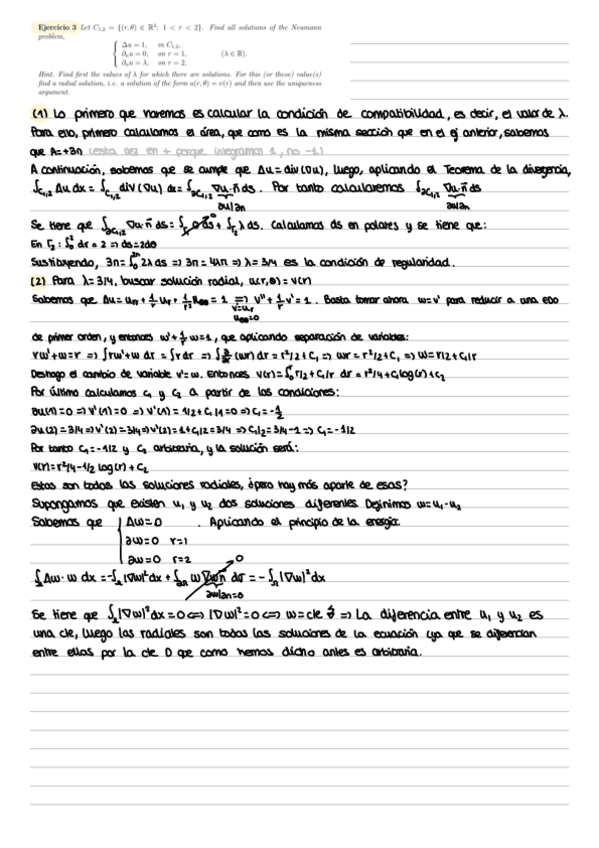 Ejercicio 3 Let C₁,₂ = {(r, θ) ∈ ℝ²; 1 < r < 2}. Find all solutions of the Neumann
problem,
{ Δu = 1, in C₁,₂,
∂ₙu = 0, on r = 1, (λ ∈ ℝ).
∂ₙu = λ, on r = 2,
Hint. Find first the values of λ for which there are solutions. For this (or these) value(s)
find a radial solution, i.e. a solution of the form u(r, θ) = v(r) and then use the uniqueness
argument.
(1) Lo primero que haremos es calcular la condición de compatibilidad, es decir, el valor de λ.
Para ello, primero calculamos el área, que como es la misma sección que en el ej anterior, sabemos
que A=+3π (esta vez en + porque integramos 1, no -1)
A continuación, sabemos que se cumple que Δu = div(∇u), luego, aplicando el Teorema de la divergencia,
∫C₁,₂ Δu dx = ∫C₁,₂ div(∇u) dx = ∫∂C₁,₂ ∇u·n ds. Por tanto calcularemos ∫∂C₁,₂ ∇u·n ds
∂u/∂n ∂u/∂n
Se tiene que ∫∂C₁,₂ ∇u·n ds = ∫Γ₁ 0 ds + ∫Γ₂ λ ds. Calculamos ds en polares y se tiene que:
En Γ₂: ∫₀² dr = 2 => ds = 2dθ
Sustituyendo, 3π = ∫₀²π 2λ ds => 3π = 4λπ => λ = 3/4 es la condición de regularidad.
(2) Para λ = 3/4, buscar solución radial, u(r,θ) = v(r)
Sabemos que Δu = urr + 1/r ur + 1/r² uθθ = 1 => v'' + 1/r v' = 1. Basta tomar ahora w = v' para reducir a una EDO
v=ur
uθθ=0
de primer orden, y entonces w' + 1/r w = 1, que aplicando separación de variables:
rw' + w = r => ∫rw' + w dr = ∫r dr => ∫ ∂/∂r (wr) dr = r²/2 + C₁ => wr = r²/2 + C₁ => w = r/2 + C₁/r
Deshago el cambio de variable v' = w. Entonces v(r) = ∫ r/2 + C₁/r dr = r²/4 + C₁log(r) + C₂
Por último calculamos C₁ y C₂ a partir de las condiciones:
∂u(1) = 0 => v'(1) = 0 => v'(1) = 1/2 + C₁/1 = 0 => C₁ = -1/2
∂u(2) = 3/4 => v'(2) = 3/4 => v'(2) = 1 + C₁/2 = 3/4 => C₁/2 = 3/4 - 1 => C₁ = -1/2
Por tanto C₁ = -1/2 y C₂ arbitraria, y la solución será:
v(r) = r²/4 - 1/2 log(r) + C₂
Estas son todas las soluciones radiales, ¿pero hay más aparte de esas?
Supongamos que existen u₁ y u₂ dos soluciones diferentes Definimos w = u₁ - u₂
Sabemos que { Δw = 0 . Aplicando el principio de la energía:
∂w = 0 r=1
∂w = 0 r=2
∫Ω Δw · w dx = -∫Ω |∇w|² dx + ∫∂Ω w ∇w n dσ = -∫Ω |∇w|² dx
0
∂w/∂n = 0
Se tiene que ∫Ω |∇w|² dx = 0 <=> |∇w|² = 0 <=> w = cte => La diferencia entre u₁ y u₂ es
una cte, luego las radiales son todas las soluciones de la ecuación (ya que se diferencian
entre ellas por la cte D que como hemos dicho antes es arbitraria.